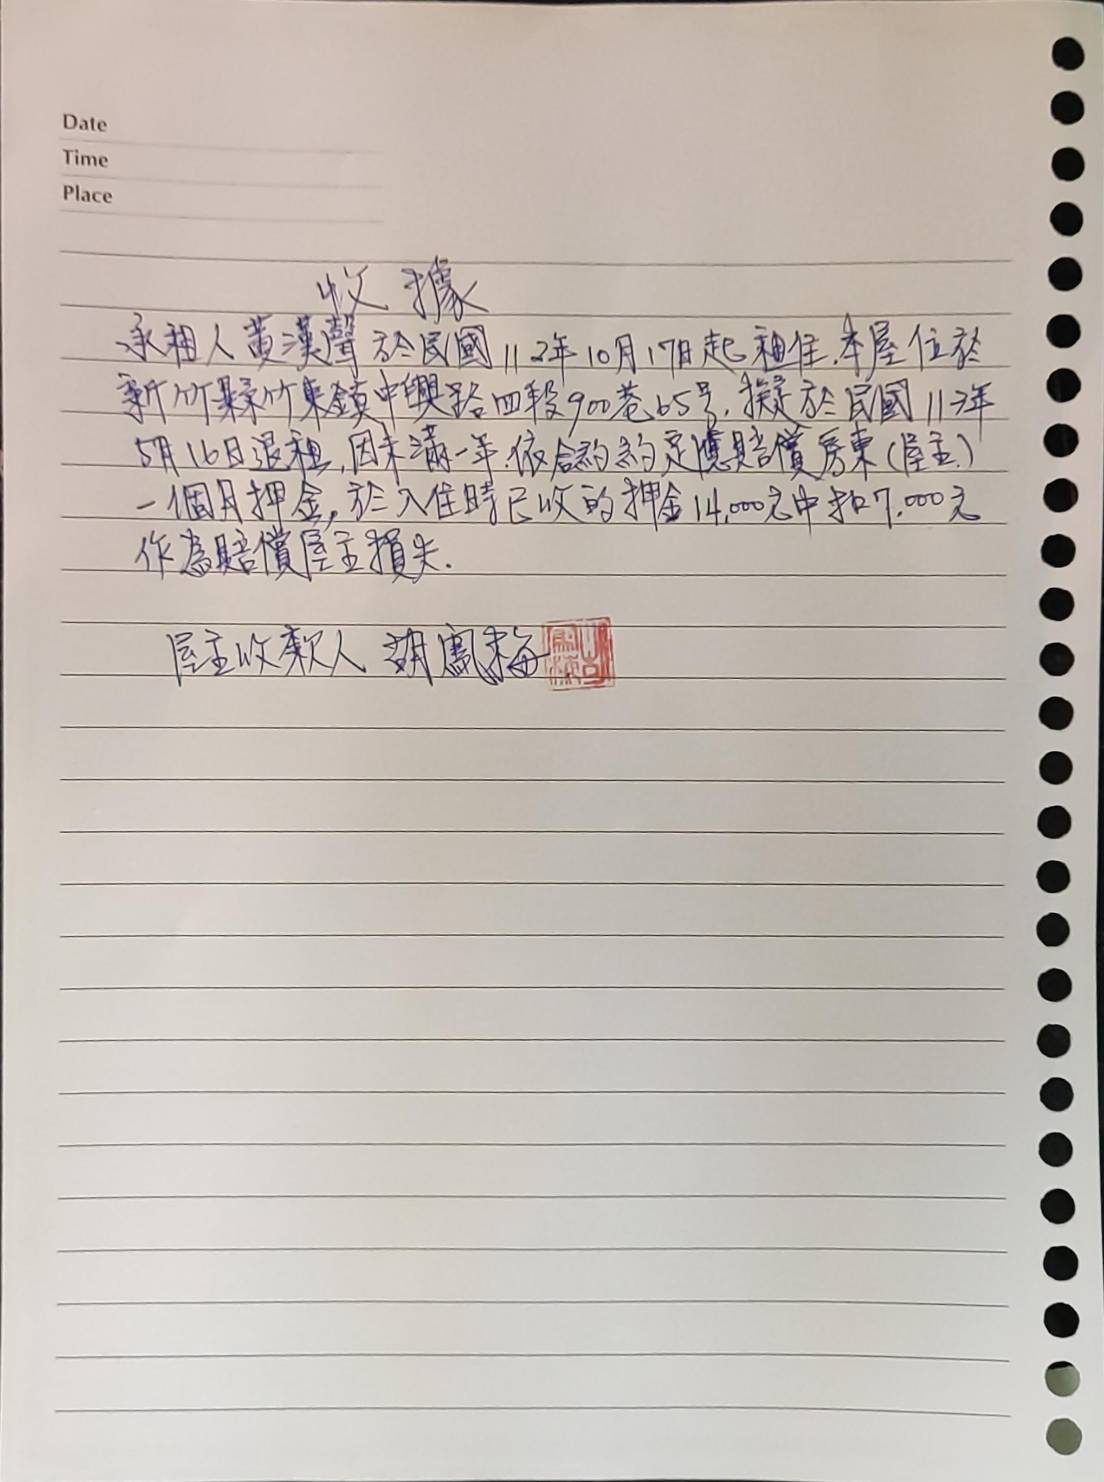 Date
Time
Place
收據
承租人黃漢聲於民國112年10月17日起租住.本屋位於
新竹縣竹東鎮中興路四段900巷65号.擬於民國113年
5月16日退租,因未滿一年.依合約約定應賠償房東(屋主)
一個月押金,於入住時已收的押金14,000元中扣7,000元
作為賠償屋主損失.
屋主收款人 胡鳳梅